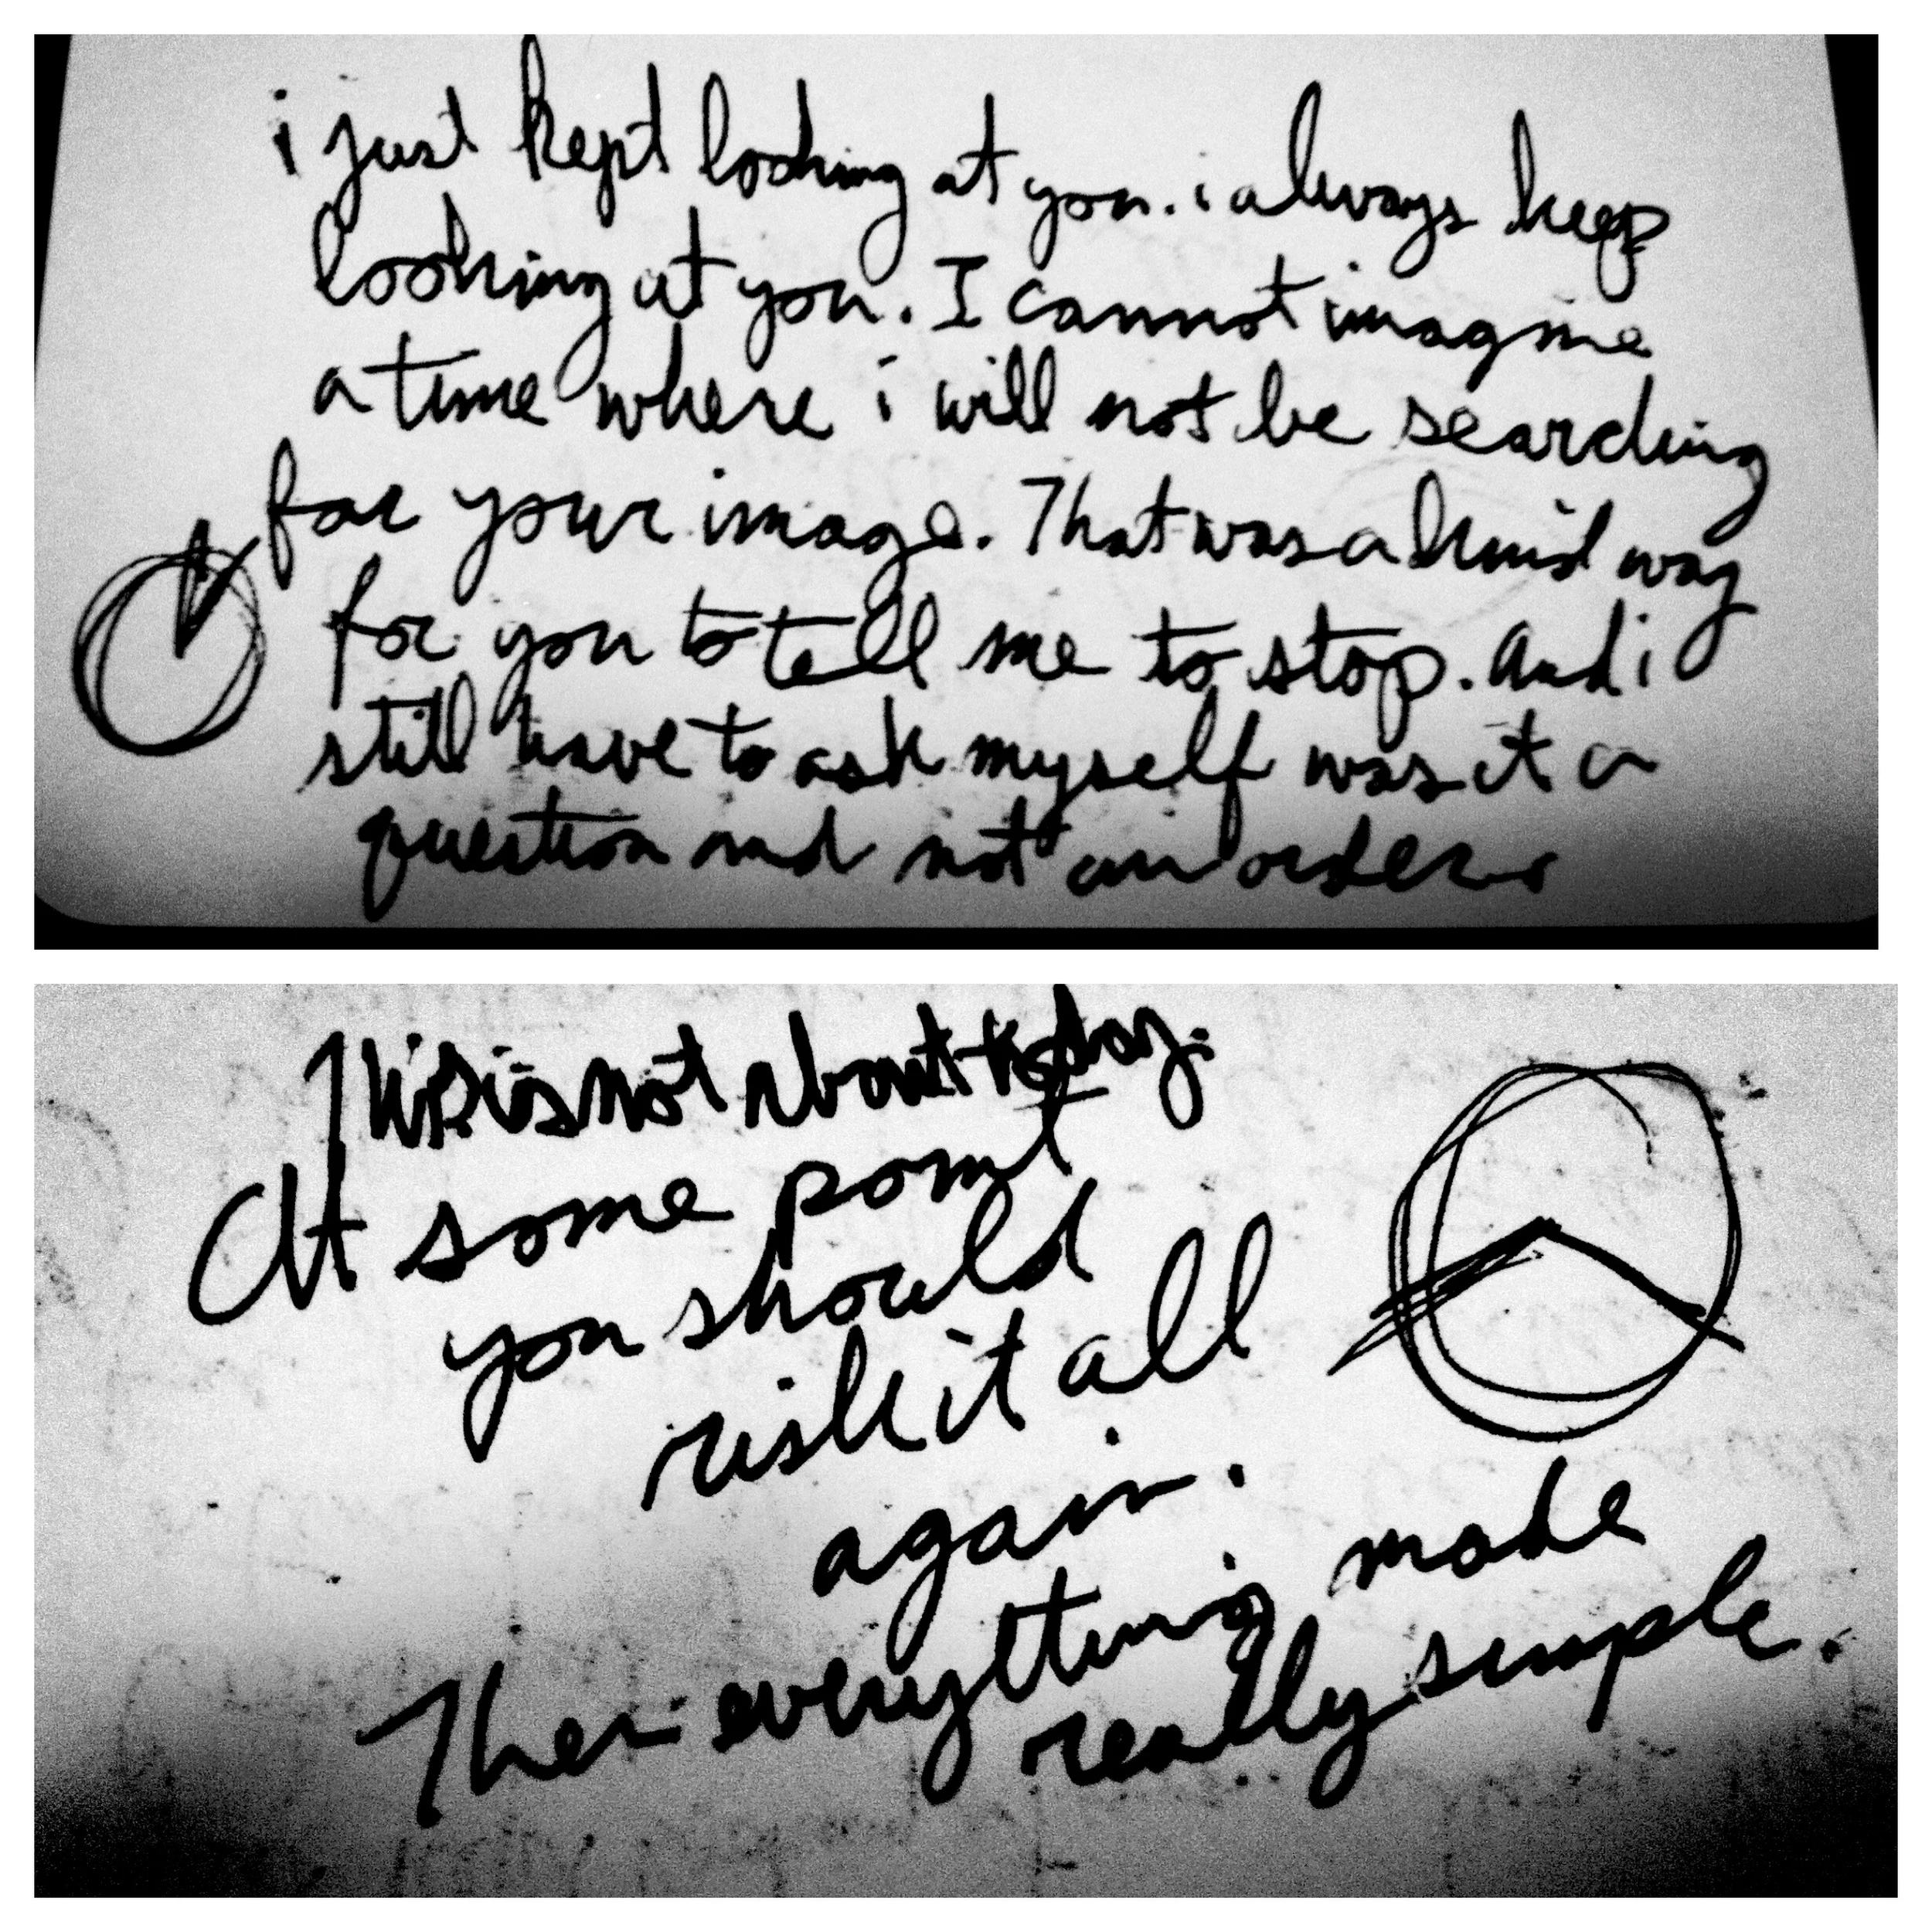 i just kept looking at you. i always keep
looking at you. I cannot imagine
a time where i will not be searching
for your image. That was a kind way
for you to tell me to stop. And i
still have to ask myself was it a
question and not an order.
This is not about today.
At some point
you should
risk it all
again.
Then everything made
really simple.